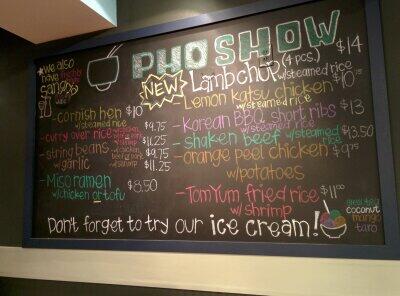 PHO SHOW
★ we also
have freshly
sangria
NEW Lamb chop (4 pcs.) $14
w/steamed rice
Lemon katsu chicken $10.75
w/steamed rice
- Cornish hen $10
w/steamed rice
- Korean BBQ short ribs $13
w/steamed rice
- curry over rice w/chicken $9.75
w/shrimp $11.25
- shaken beef w/steamed rice $13.50
- string beans w/chicken, $9.75
w/garlic w/shrimp $11.25
- orange peel chicken $9.75
w/potatoes
- Miso ramen $8.50
w/chicken or tofu
- Tom Yum fried rice $11.00
w/shrimp
Don't forget to try our ice cream!
green tea
coconut
mango
taro